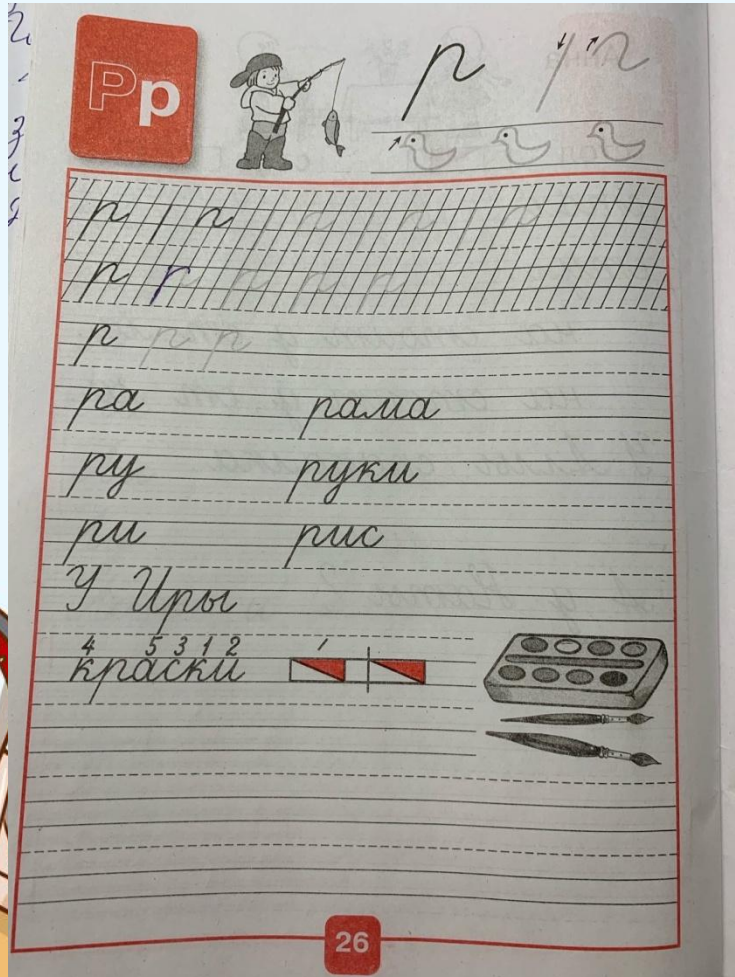 Рр
р
р р
р р
р
ра рама
ру руки
ри рис
У Иры
4 5 3 1 2
краски
26